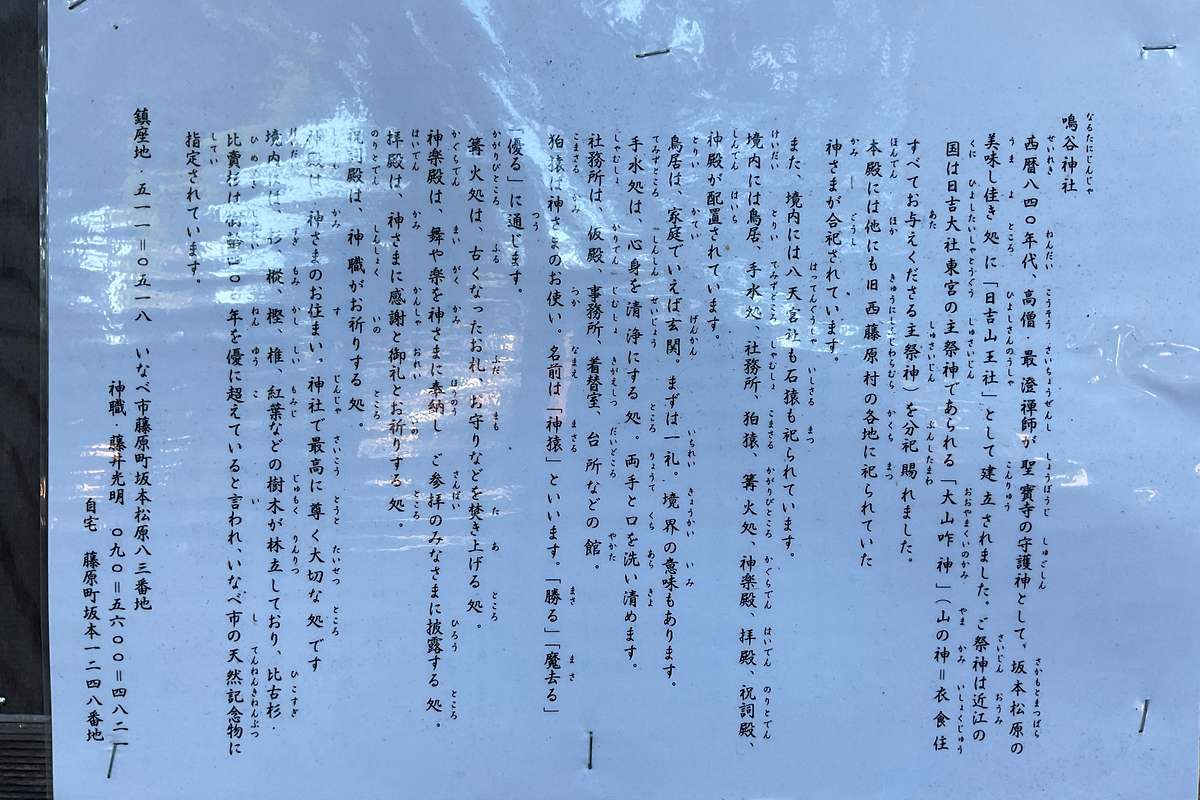 鳴谷神社
西暦八四〇年代、高僧・最澄禅師が聖寳寺の守護神として、坂本松原の
美味し佳き処に「日吉山王社」として建立されました。ご祭神は近江の
国は日吉大社東宮の主祭神であられる「大山咋神」（山の神＝衣食住
すべてお与えくださる主祭神）を分祀賜れました。
本殿には他にも旧西藤原村の各地に祀られていた
神さまが合祀されています。
また、境内には八天宮社も石猿も祀られています。
境内には鳥居、手水処、社務所、狛猿、篝火処、神楽殿、拝殿、祝詞殿、
神殿が配置されています。
鳥居は、家庭でいえば玄関。まずは一礼。境界の意味もあります。
手水処は、心身を清浄にする処。両手と口を洗い清めます。
社務所は、仮殿、事務所、着替室、台所などの館。
狛猿は神さまのお使い。名前は「神猿」といいます。「勝る」「魔去る」
「優る」に通じます。
篝火処は、古くなったお札、お守りなどを焚き上げる処。
神楽殿は、舞や楽を神さまに奉納し、ご参拝のみなさまに披露する処。
拝殿は、神さまに感謝と御礼とお祈りする処。
祝詞殿は、神職がお祈りする処。
神殿は、神さまのお住まい。神社で最高に尊く大切な処です
境内には、杉、樅、樫、椎、紅葉などの樹木が林立しており、比古杉・
比賣杉は樹齢 〇〇年を優に超えていると言われ、いなべ市の天然記念物に
指定されています。
鎮座地・五一一＝〇五一八 いなべ市藤原町坂本松原八三番地
神職・藤井光明 〇九〇＝五六〇〇＝四八二一
自宅 藤原町坂本一二四八番地